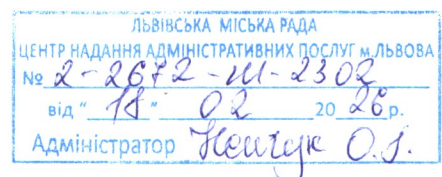 ЛЬВІВСЬКА МІСЬКА РАДА
ЦЕНТР НАДАННЯ АДМІНІСТРАТИВНИХ ПОСЛУГ м.ЛЬВОВА
№ 2-2672-Ш-2302
від " 18 " 02 20 26 р.
Адміністратор О.